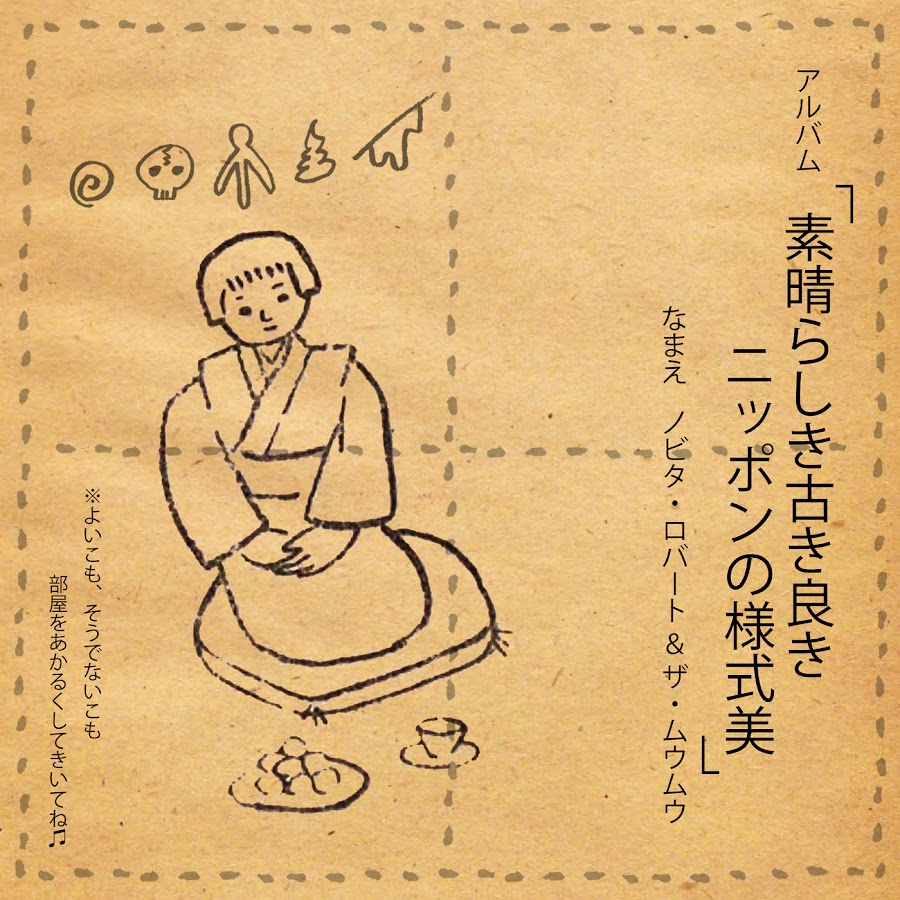 アルバム
「素晴らしき古き良き
ニッポンの様式美」
なまえ ノビタ・ロバート & ザ・ムウムウ
※よいこも、そうでないこも
部屋をあかるくしてきいてね♫